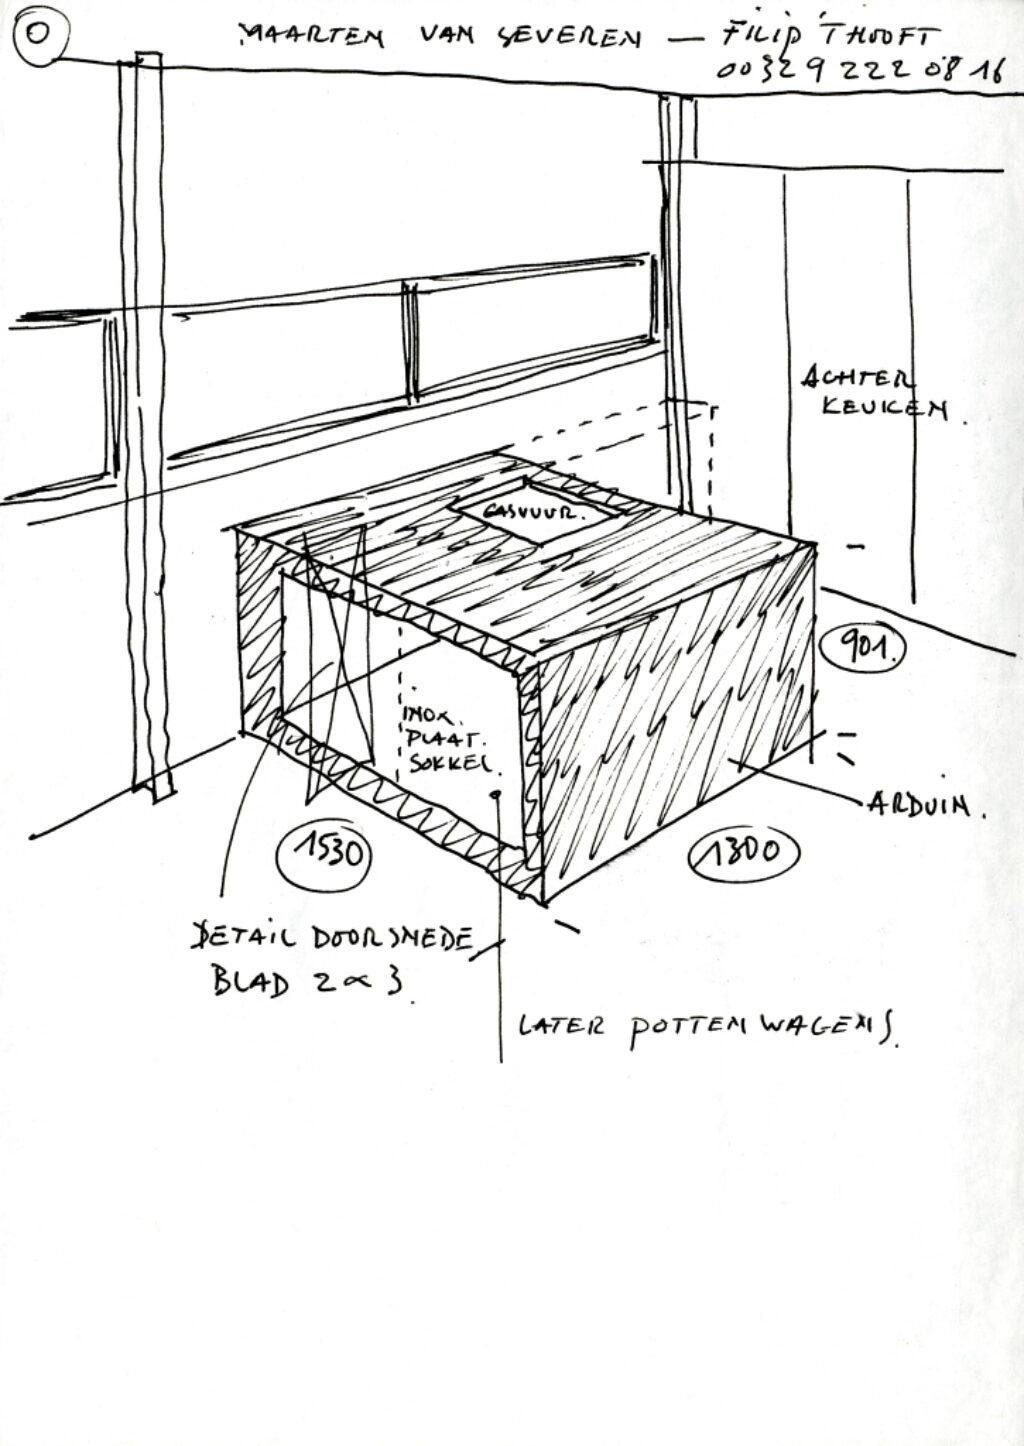 0
MAARTEN VAN SEVEREN — FILIP 'THOOFT
00 32 9 222 08 16
ACHTER
KEUKEN.
GASVUUR.
901.
INOX.
PLAAT.
SOKKEL.
ARDUIN.
1530
1300
DETAIL DOORSNEDE
BLAD 2 ∝ 3.
LATER POTTENWAGENS.